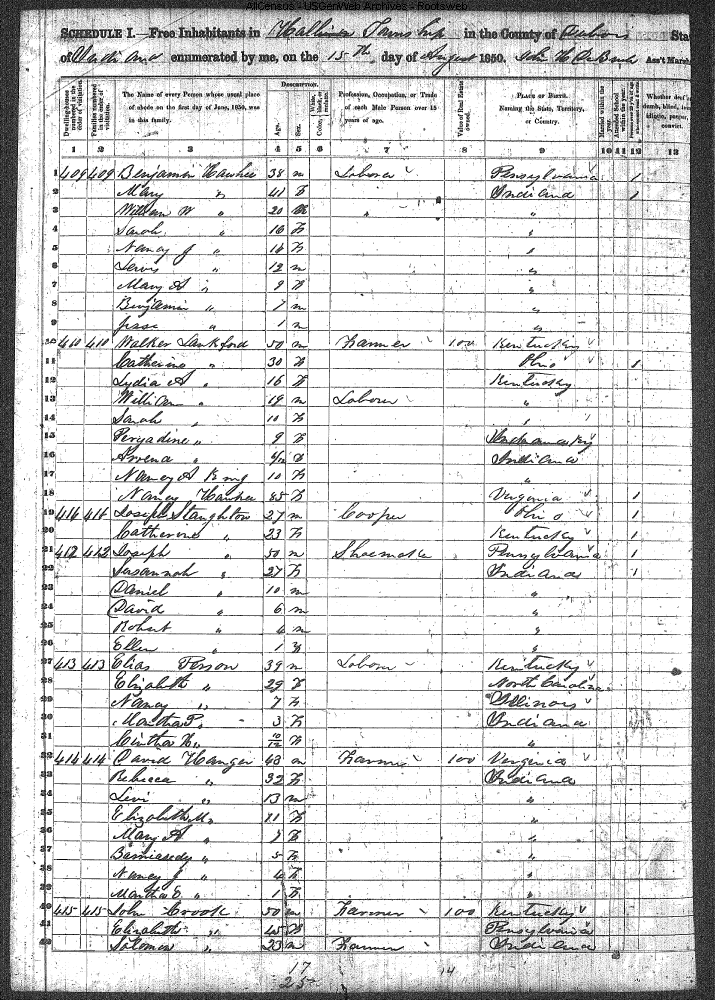 AllCensus - USGenWeb Archives - Rootsweb
SCHEDULE I.—Free Inhabitants in Township in the County of Dubois State
of Indiana enumerated by me, on the 15th day of August 1850. Ass't Marsh
Dwelling-houses numbered in the order of visitation.
Families numbered in the order of visitation.
The Name of every Person whose usual place of abode on the first day of June, 1850, was in this family.
DESCRIPTION.
Age.
Sex.
Color, White, black, or mulatto.
Profession, Occupation, or Trade of each Male Person over 15 years of age.
Value of Real Estate owned.
PLACE OF BIRTH. Naming the State, Territory, or Country.
Married within the year.
Attended School within the year.
Whether deaf & dumb, blind, insane, idiotic, pauper, or convict.
1 2 3 4 5 6 7 8 9 10 11 12 13
1 409 409 Benjamin Hawhee 38 m Laborer Pensylvania 1
2 Mary " 41 f Indiana 1
3 William W " 20 m " "
4 Sarah " 16 f "
5 Nancy J " 14 f "
6 Lewis " 12 m "
7 Mary A " 9 f "
8 Benjamin " 7 m "
9 Jesse " 1 m "
10 410 410 Walker Lankford 50 m Farmer 100 Kentucky
11 Catherine " 30 f Ohio 1
12 Lydia A " 16 f Kentucky
13 William " 19 m Laborer "
14 Sarah " 10 f "
15 " 9 f
16 " /12 f Indiana
17 Nancy A King 10 f "
18 Nancy Hawhee 85 f Virginia 1
19 411 411 Joseph Staughton 27 m Cooper Ohio 1
20 Catherine " 23 f Kentucky 1
21 412 412 Joseph " 50 m Shoemaker Pensylvania 1
22 Susannah " 27 f Indiana 1
23 Daniel " 10 m "
24 David " 6 m "
25 Robert " 4 m "
26 Ellen " 1 f "
27 413 413 Elias Person 39 m Laborer Kentucky
28 Elizabeth " 29 f North Carolina
29 Nancy " 7 f Illinois
30 Martha P. " 3 f Indiana
31 Cintha " 10/12 f "
32 414 414 David Hanger 43 m Farmer 100 Virginia
33 Rebecca " 32 f Indiana
34 Levi " 13 m "
35 Elizabeth M " 11 f "
36 Mary A " 7 f "
37 " 5 f "
38 Nancy J " 4 f "
39 Martha E " 1 f "
40 415 415 John Crook 50 m Farmer 100 Kentucky
41 Elizabeth " 45 f Pensylvania
42 Solomon " 23 m Farmer Indiana
17
25
14